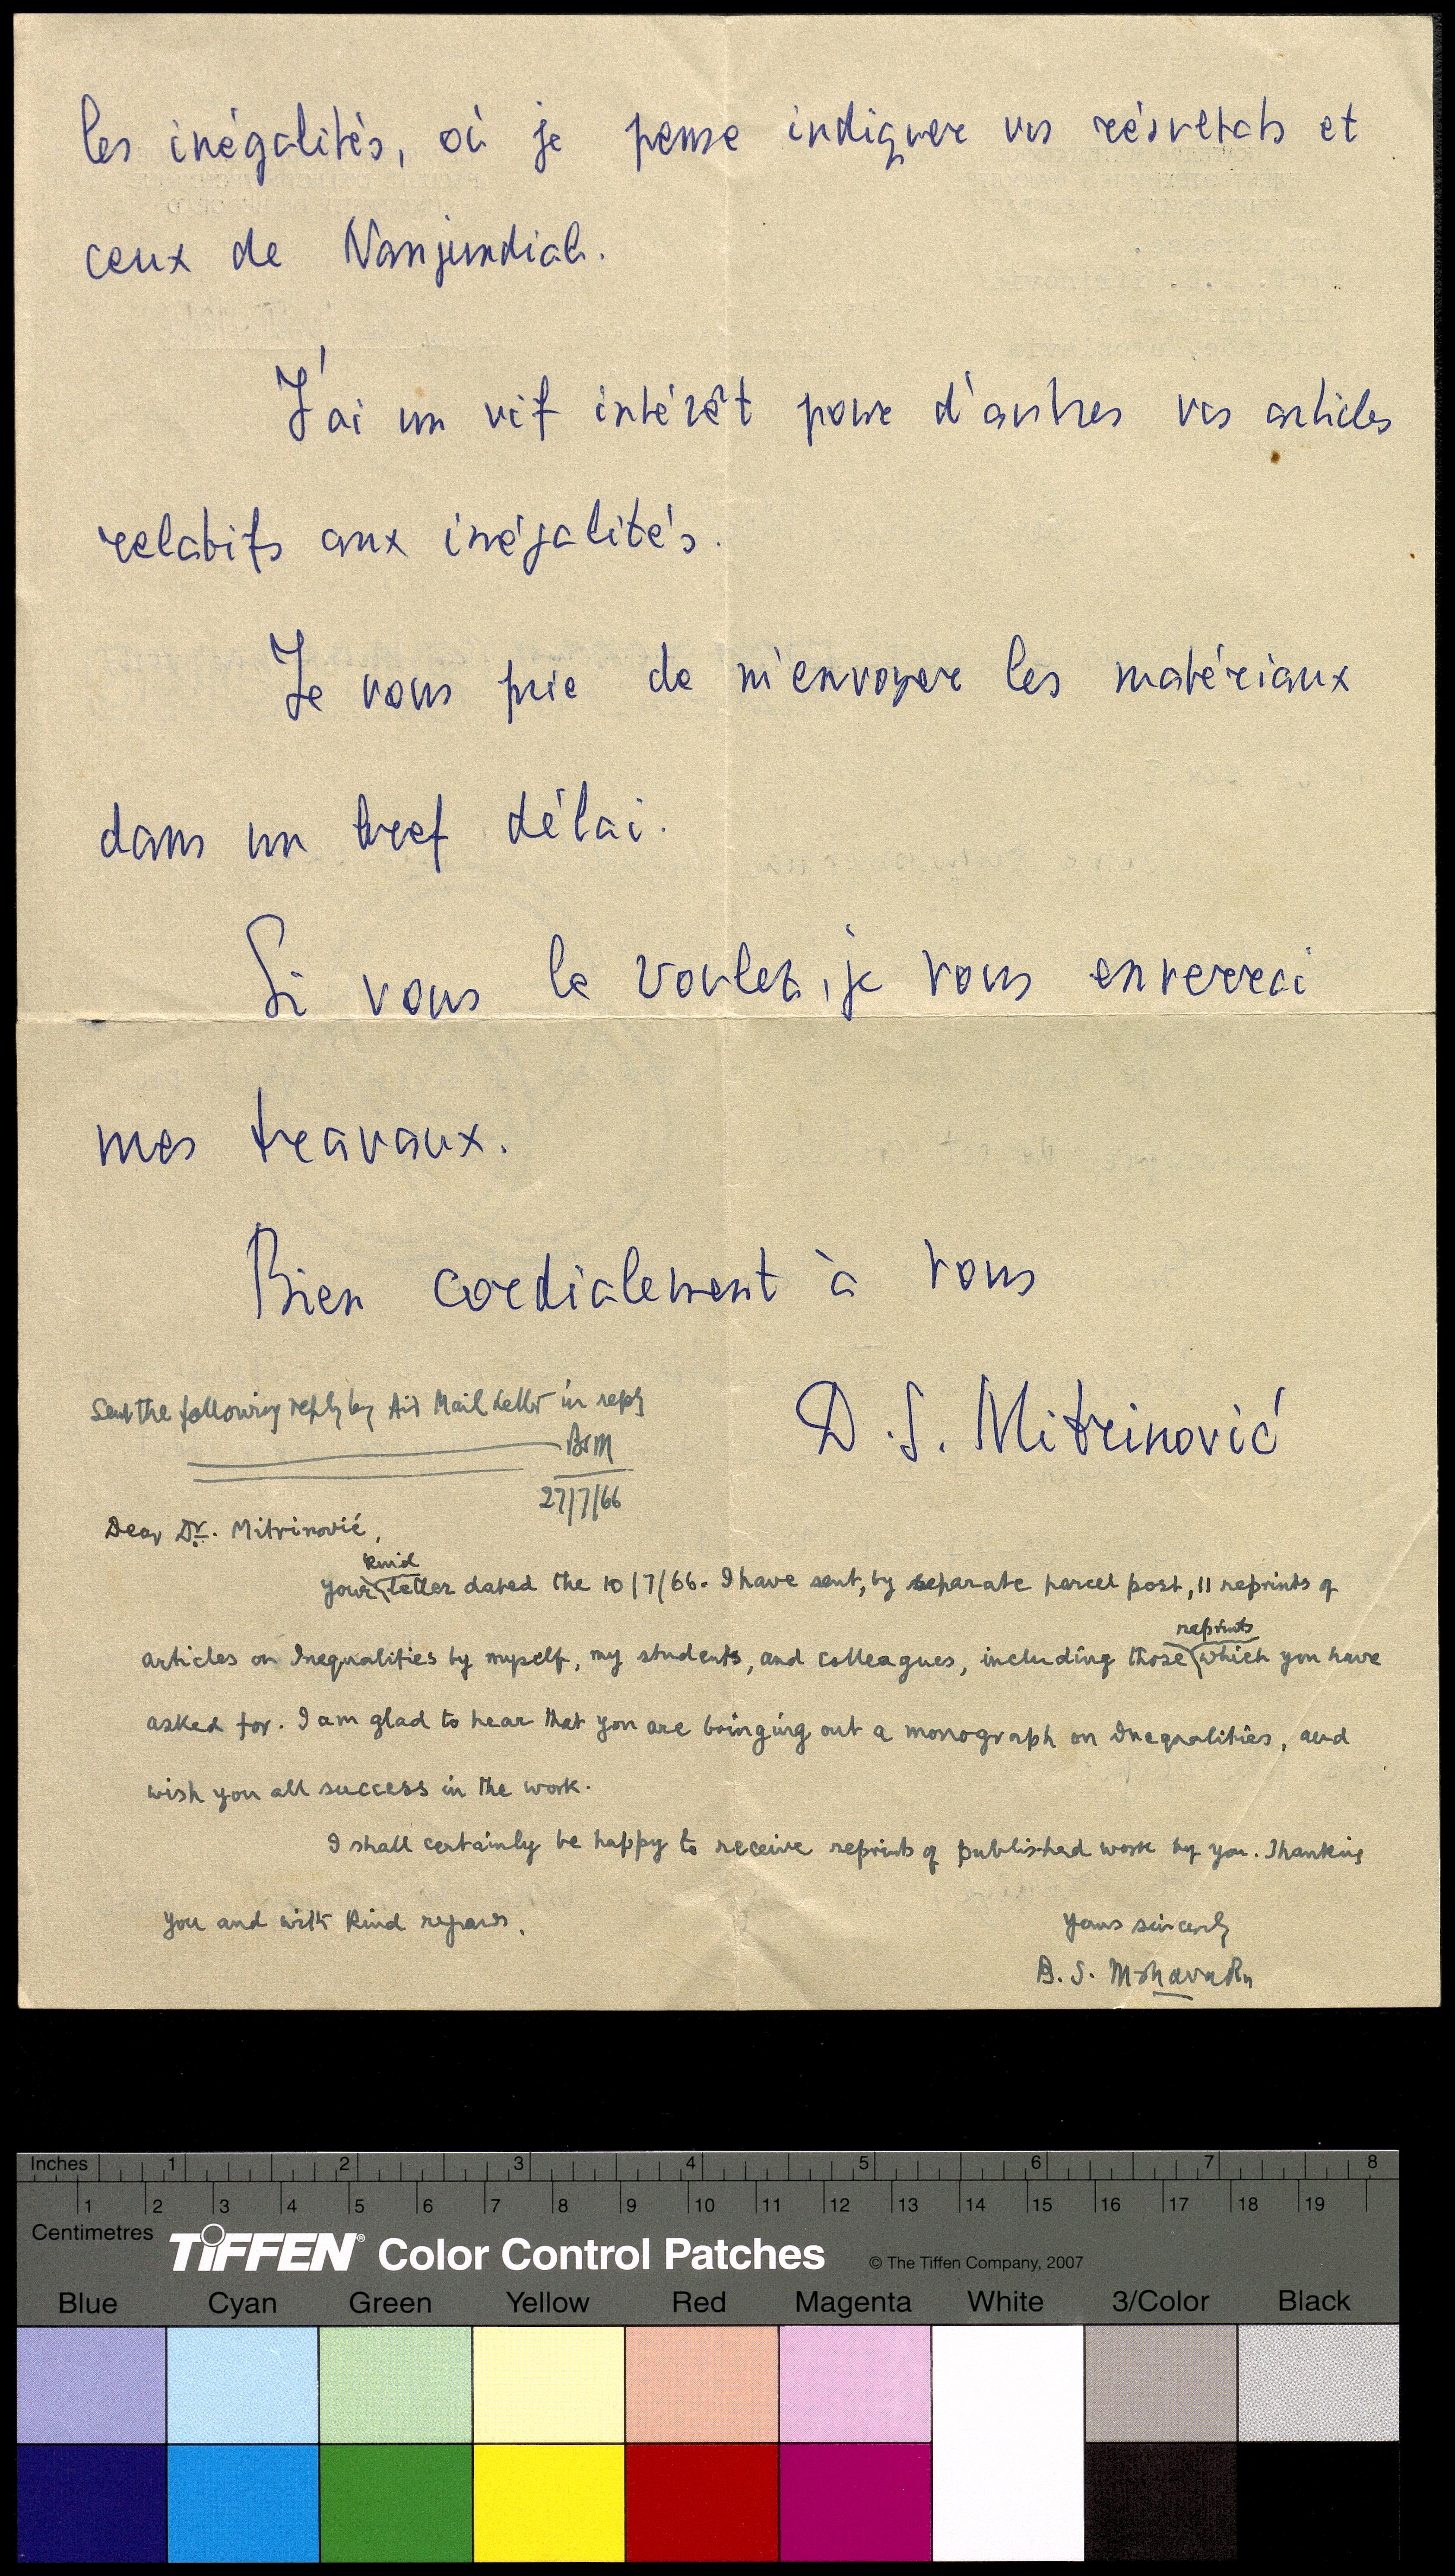 les inégalités, où je pense indiquer vos résultats et
ceux de Nanjundiah.
J'ai un vif intérêt pour d'autres vos articles
relatifs aux inégalités.
Je vous prie de m'envoyer les matériaux
dans un bref délai.
Si vous le voulez, je vous enverrai
mes travaux.
Bien cordialement à vous
D. S. Mitrinović
Sent the following reply by Air Mail Letter in reply
BSM
27/7/66
Dear Dr. Mitrinović,
kind
Your letter dated the 10/7/66. I have sent, by separate parcel post, 11 reprints of
reprints
articles on Inequalities by myself, my students, and colleagues, including those which you have
asked for. I am glad to hear that you are bringing out a monograph on Inequalities, and
wish you all success in the work.
I shall certainly be happy to receive reprints of published work by you. Thanking
you and with kind regards,
Yours sincerely
B. S. Madhava Rao
Inches 1 2 3 4 5 6 7 8
1 2 3 4 5 6 7 8 9 10 11 12 13 14 15 16 17 18 19
Centimetres
TIFFEN® Color Control Patches © The Tiffen Company, 2007
Blue Cyan Green Yellow Red Magenta White 3/Color Black